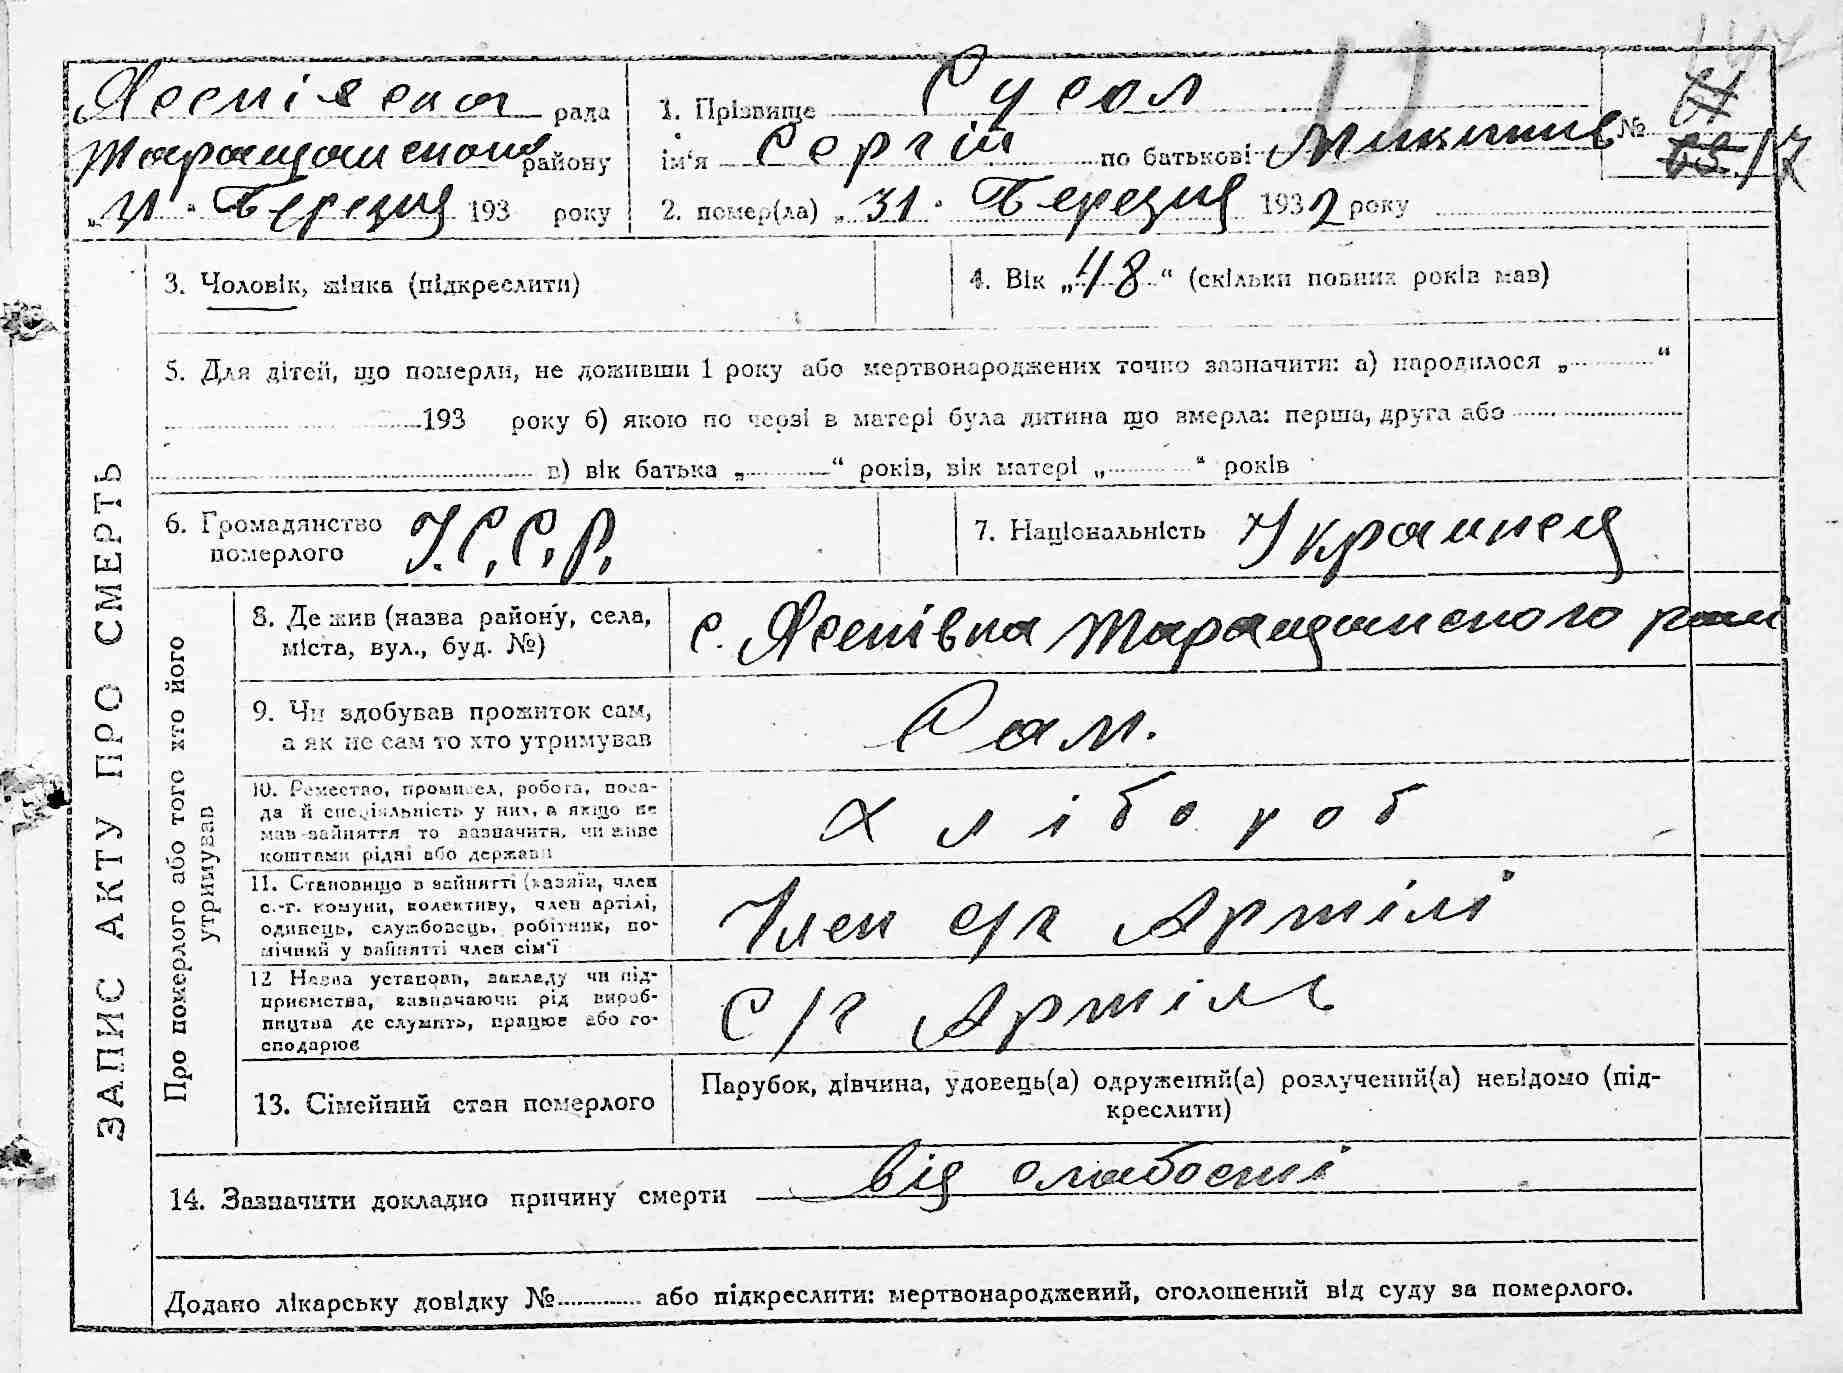 Ясенівська рада
Таращанського району
„31“ Березня 193 року
1. Прізвище Сусол
ім'я Сергій по батькові Микитив
№ 17
2. помер(ла) „31“ Березня 1932 року
3. Чоловік, жінка (підкреслити)
4. Вік „48“ (скільки повних років мав)
5. Для дітей, що померли, не доживши 1 року або мертвонароджених точно зазначити: а) народилося „ “
193 року б) якою по черзі в матері була дитина що вмерла: перша, друга або
в) вік батька „ “ років, вік матері „ “ років
6. Громадянство
померлого У.С.С.Р.
7. Національність Украинец
ЗАПИС АКТУ ПРО СМЕРТЬ
Про померлого або того хто його
утримував
8. Де жив (назва району, села,
міста, вул., буд. №)
с. Ясенівка Таращанського рай
9. Чи здобував прожиток сам,
а як не сам то хто утримував
Сам.
10. Ремество, промисел, робота, поса-
да й спеціяльність у них, а якщо не
мав зайняття то зазначити, чи живе
коштами рідні або держави
хлібороб
11. Становище в зайнятті (хазяїн, член
с.-г. комуни, колективу, член артілі,
одинець, службовець, робітник, по-
мічний у зайнятті член сім'ї
Член с/г Артілі
12 Назва установи, закладу чи під-
приємства, зазначаючи рід вироб-
ництва де служить, працює або го-
сподарює
С/г Артіль
13. Сімейний стан померлого
Парубок, дівчина, удовець(а) одружений(а) розлучений(а) невідомо (під-
креслити)
14. Зазначити докладно причину смерти від слабості
Додано лікарську довідку № або підкреслити: мертвонароджений, оголошений від суду за померлого.